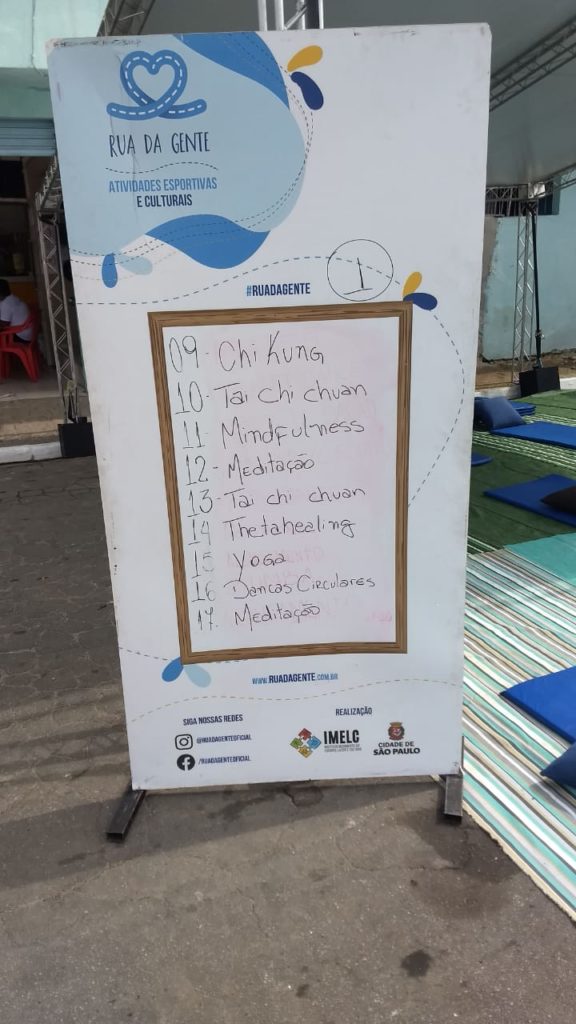 RUA DA GENTE
ATIVIDADES ESPORTIVAS
E CULTURAIS
#RUADAGENTE
1
09 - Chi Kung
10 - Tai chi chuan
11 Mindfulness
12 - Meditação
13 - Tai chi chuan
14 Thetahealing
15 Yoga
16 Danças Circulares
17. Meditação
WWW.RUADAGENTE.COM.BR
SIGA NOSSAS REDES
@RUADAGENTEOFICIAL
/RUADAGENTEOFICIAL
REALIZAÇÃO
IMELC
CIDADE DE
SÃO PAULO